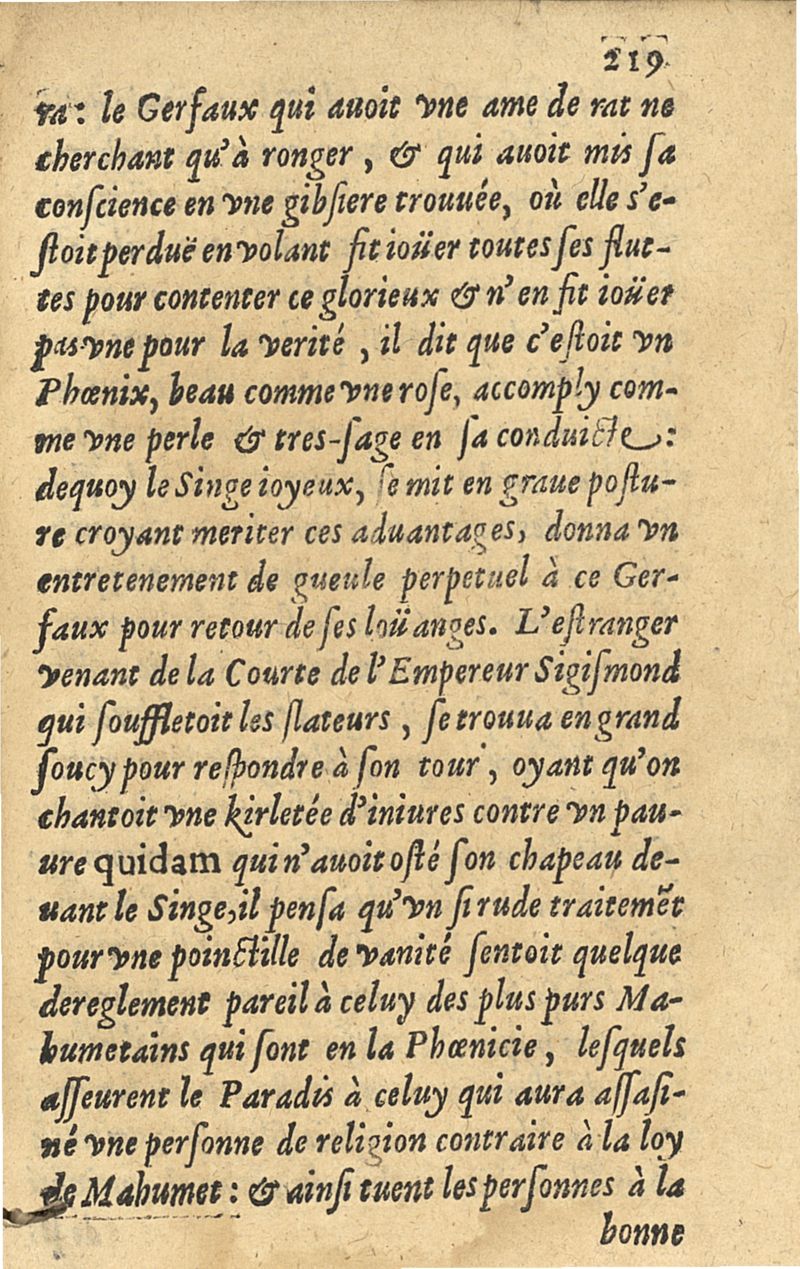 219
ra: le Gerfaux qui auoit vne ame de rat ne
cherchant qu'à ronger, & qui auoit mis ſa
conſcience en vne gibſiere trouuée, où elle s'e-
ſtoit perduë en volant fit ioüer toutes ſes flut-
tes pour contenter ce glorieux & n'en fit ioüer
pas vne pour la verité, il dit que c'eſtoit vn
Phœnix, beau comme vne roſe, accomply com-
me vne perle & tres-ſage en ſa conduicte:
dequoy le Singe ioyeux, ſe mit en graue poſtu-
re croyant meriter ces aduantages, donna vn
entretenement de gueule perpetuel à ce Ger-
faux pour retour de ſes loüanges. L'eſtranger
venant de la Courte de l'Empereur Sigiſmond
qui ſouffletoit les flateurs, ſe trouua en grand
ſoucy pour reſpondre à ſon tour, oyant qu'on
chantoit vne kirletée d'iniures contre vn pau-
ure quidam qui n'auoit oſté ſon chapeau de-
uant le Singe, il penſa qu'vn ſi rude traitemẽt
pour vne poinctille de vanité ſentoit quelque
dereglement pareil à celuy des plus purs Ma-
humetains qui ſont en la Phœnicie, leſquels
aſſeurent le Paradis à celuy qui aura aſſaſi-
né vne perſonne de religion contraire à la loy
de Mahumet: & ainſi tuent les perſonnes à la
bonne